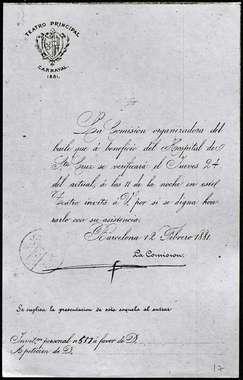 TEATRO PRINCIPAL
CARNAVAL
1881.
La Comisión organizadora del
baile que á beneficio del Hospital de
Sta Cruz se verificará el Jueves 24
del actual, á las 11 de la noche en este
Teatro invita á V. por si se digna hon-
rarlo con su asistencia.
Barcelona 12 Febrero 1881.
La Comision.
Se suplica la presentacion de esta esquela al entrar
Invit.on personal n.º 557 á favor de D.
A peticion de D.
17